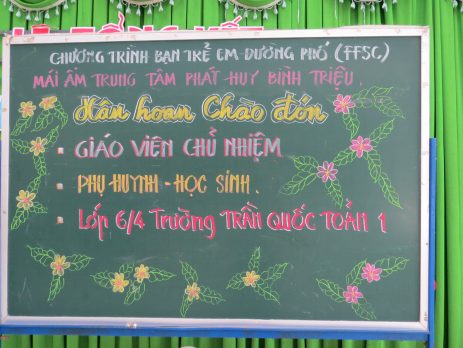 CHƯƠNG TRÌNH BẠN TRẺ EM ĐƯỜNG PHỐ (FFSC)
MÁI ẤM TRUNG TÂM PHÁT HUY BÌNH TRIỆU.
Hân hoan Chào đón
- GIÁO VIÊN CHỦ NHIỆM
- PHỤ HUYNH - HỌC SINH.
- Lớp 6/4 Trường TRẦN QUỐC TOẢN 1